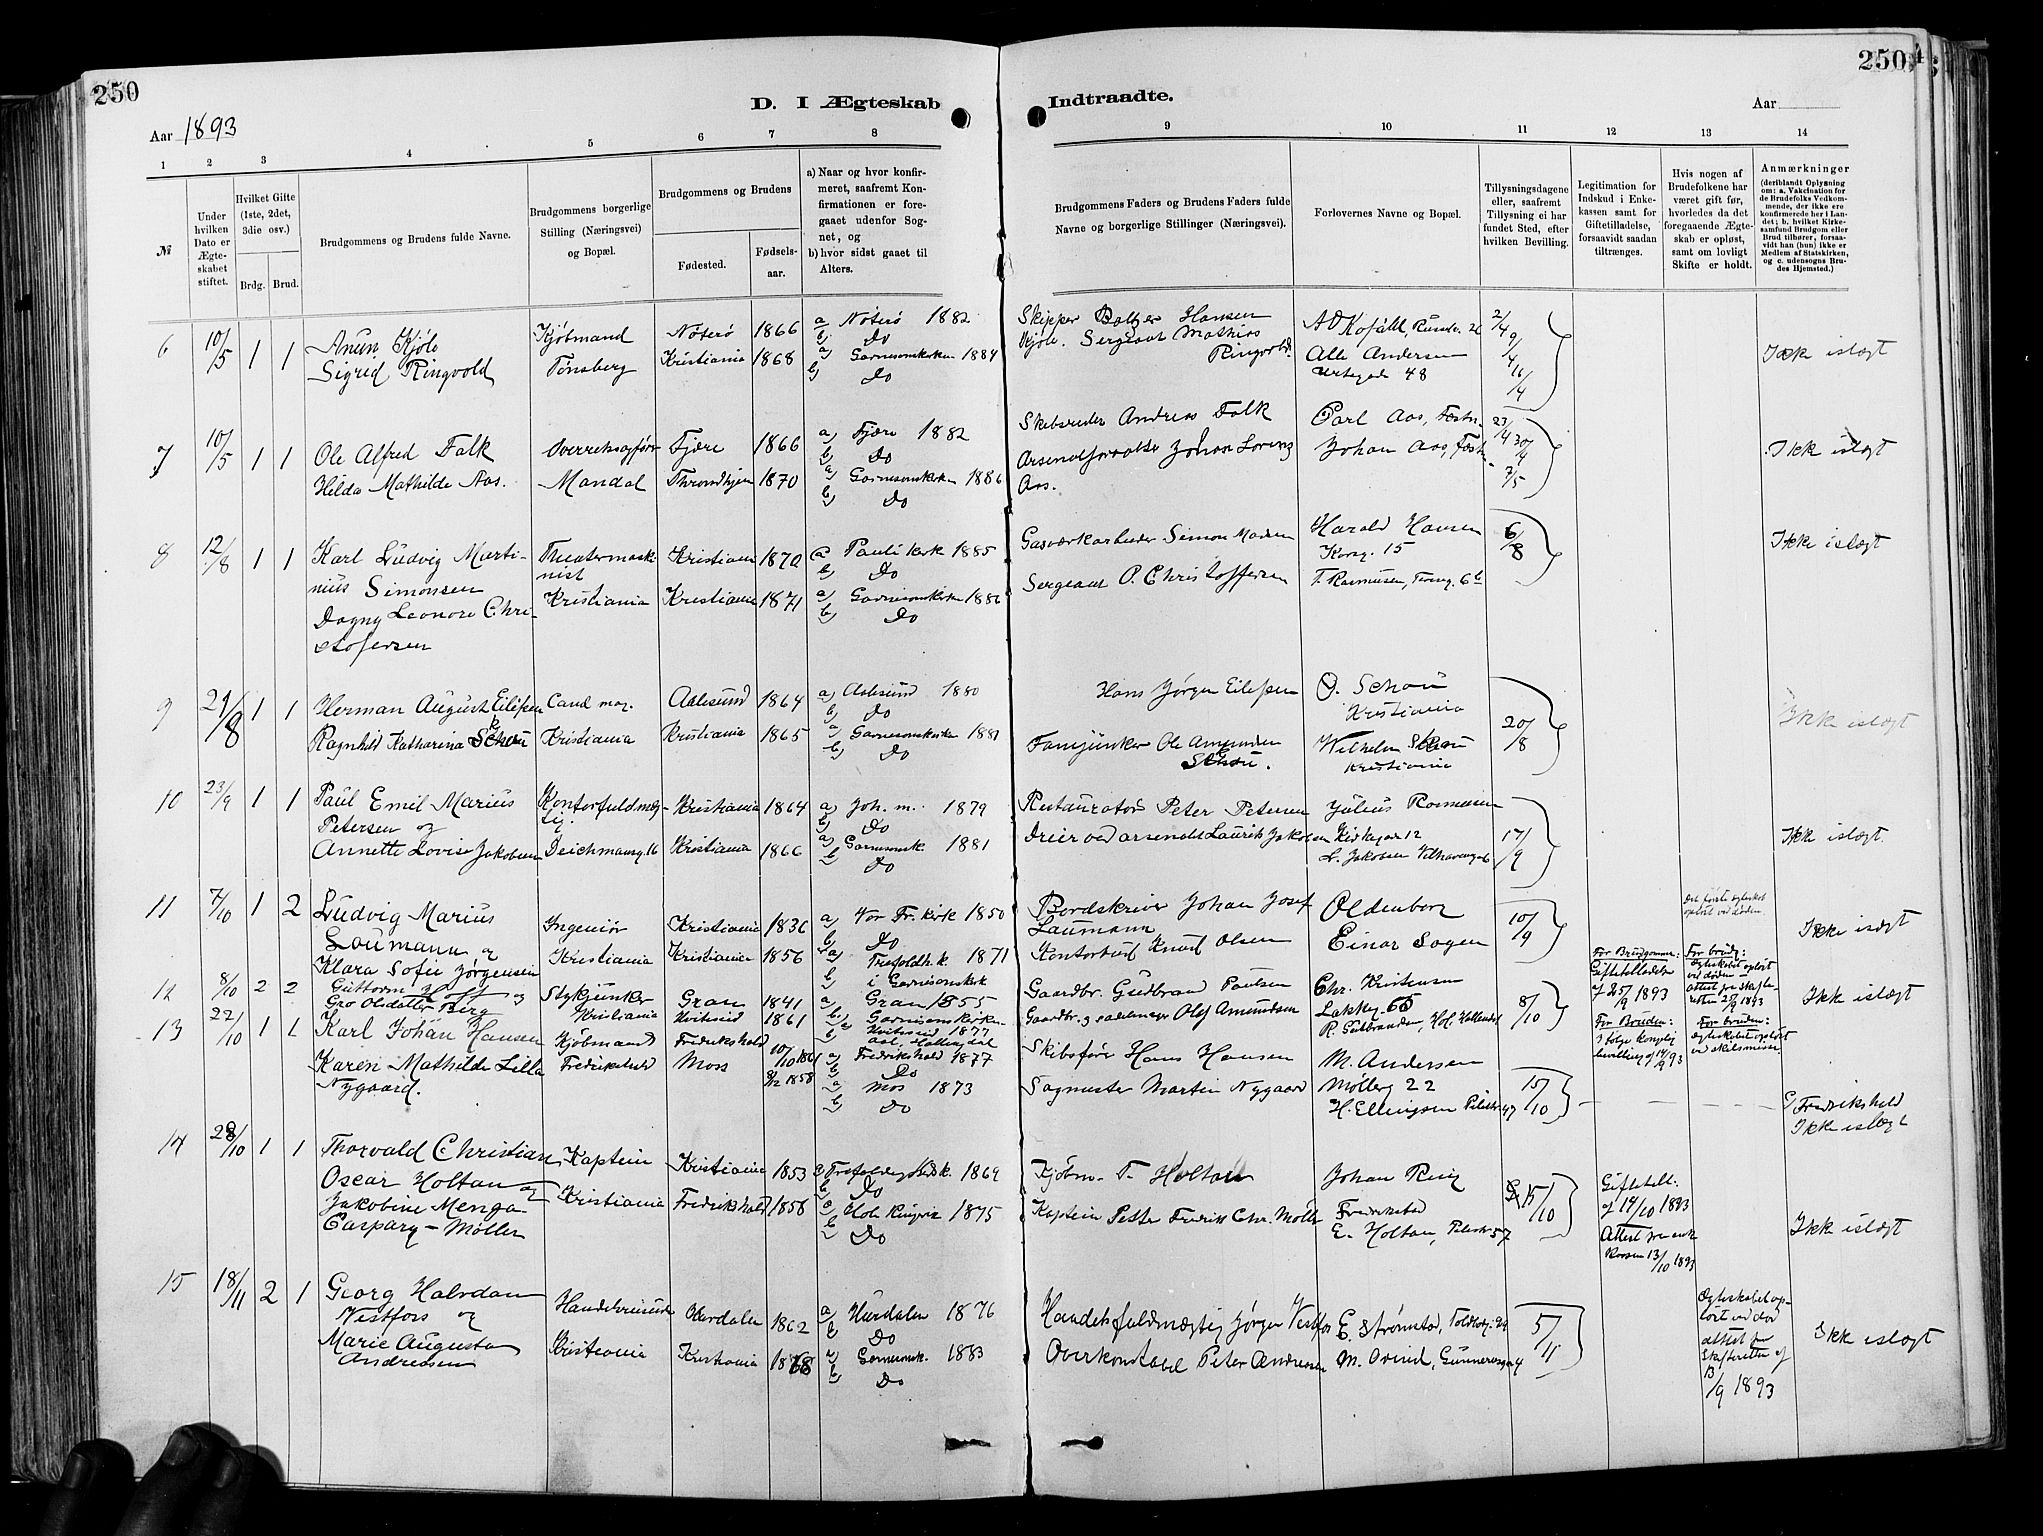 250
D. I Ægteskab
Aar 1893
1 2 3 4 5 6 7 8
№
Under hvilken Dato er Ægteskabet stiftet.
Hvilket Gifte (1ste, 2det, 3die osv.)
Brdg. Brud.
Brudgommens og Brudens fulde Navne.
Brudgommens borgerlige Stilling (Næringsvei) og Bopæl.
Brudgommens og Brudens
Fødested. Fødselsaar.
a) Naar og hvor konfirmeret, saafremt Konfirmationen er foregaaet udenfor Sognet, og
b) hvor sidst gaaet til Alters.
6 10/5 1 1
Anun Kjøle
Sigrid Ringvold
Kjøbmand
Tønsberg
Nøterø 1866
Kristiania 1868
a) Nøterø 1882
b) Do
a) Garnisonskirken 1884
b) Do
7 10/5 1 1
Ole Alfred Falk
Hilda Mathilde Aas.
Overretssagfører
Mandal
Fjære 1866
Throndhjem 1870
a) Fjære 1882
b) Do
a) Garnisonskirken 1886
b) Do
8 12/8 1 1
Karl Ludvig Marti-
nius Simonsen
Dagny Leonore Chri-
stofersen
Theatermaski-
nist
Kristiania
Kristiania 1870
Kristiania 1871
a) Pauli kirk 1885
b) Do
a) Garnisonskirken 1886
b) Do
9 29/8 1 1
Herman August Eilifsen
Ragnhild Katharina Schou
Cand mag.
Kristiania
Aalesund 1864
Kristiania 1865
a) Aalesund 1880
b) Do
a) Garnisonskirken 1881
b) Do
10 23/9 1 1
Paul Emil Marius
Petersen og
Annette Lovise Jakobsen
Kontorfuldmæg-
tig.
Deichmansg. 16
Kristiania 1864
Kristiania 1866
a) Joh. m. 1879
b) Do
a) Garnisonsk. 1881
b) Do
11 7/10 1 2
Ludvig Marius
Laumann og
Klara Sofie Jørgensen
Ingeniør
Kristiania
Kristiania 1836
Kristiania 1856
a) Vor Fr. kirk 1850
b) Do
a) Trefoldh.k. 1871
b) i Garnisonskirk
12 8/10 2 2
Guttorm
Gro Olsdatter Berg
Stykjunker
Kristiania
Gran 1841
Hvitseid 1861
a) Gran 1855
b) Garnisonskirken
a) Hvitseid 1877
b) Aal, Hallingdal
13 22/10 1 1
Karl Johan Hansen
Karen Mathilde Lilla
Nygaard.
Kjøbmand
Fredrikshald
Fredrikshald 10/10 1861
Moss 8/12 1858
a) Fredrikshald 1877
b) Do
a) Mos 1873
b) Do
14 28/10 1 1
Thorvald Christian
Oscar Holtan og
Jakobine Menga
Caspary-Møller
Kaptein
Kristiania
Kristiania 1853
Fredrikshald 1856
a) Trefoldighedsk. 1869
b) Do
a) Hole Ringerik 1875
b) Do
15 18/11 2 1
Georg Halvdan
Vestfos og
Marie Augusta
Andresen
Handelsreisende
Kristiania
Hurdalen 1862
Kristiania 1868
a) Hurdalen 1876
b) Do
a) Garnisonsk. 1883
b) Do
250
Indtraadte.
Aar
9 10 11 12 13 14
Brudgommens Faders og Brudens Faders fulde Navne og borgerlige Stillinger (Næringsvei).
Forlovernes Navne og Bopæl.
Tillysningsdagene eller, saafremt Tillysning ei har fundet Sted, efter hvilken Bevilling.
Legitimation for Indskud i Enkekassen samt for Giftetilladelse, forsaavidt saadan tiltrænges.
Hvis nogen af Brudefolkene har været gift før, hvorledes da det foregaaende Ægteskab er opløst, samt om lovligt Skifte er holdt.
Anmærkninger (deriblandt Oplysning om: a. Vakcination for de Brudefolks Vedkommende, der ikke ere konfirmerede her i Landet; b. hvilket Kirkesamfund Brudgom eller Brud tilhører, forsaavidt han (hun) ikke er Medlem af Statskirken, og c. udensogns Brudes Hjemsted.)
Skipper Baltzer Hansen
Kjøle. Sergeant Mathias
Ringvold.
Alle Andersen
Urtegade 48
2/4 9/4 16/4
Ikke islægt
Skibsreder Andreas Falk
Arsenalforvalter Johan Lorenz
Aas.
Carl Aas, Fæstn.
Johan Aas, Fæstn.
23/4 30/4 7/5
Ikke islægt
Gasværksarbeider Simon Madsen
Sergeant P. Christoffersen
Harald Hansen
Korsg. 15
T. Rasmussen, Torvg. 6b
6/8
Ikke islægt
Hans Jørgen Eilifsen
Fanejunker Ole Amundsen
Schou.
O. Schou
Kristiania
Wilhelm Schou
Kristiania
20/8
Ikke islægt
Restauratør Peter Petersen
Dreier ved arsenalet Laurits Jakobsen
Julius Rasmussen
Kirkegad 12
L. Jakobsen Velhavensg. 6
17/9
Ikke islægt.
Bordskriver Johan Josef
Laumann
Kontorbud Knud Olsen
Oldenborg
Einar Sagen
10/9
Det første egteskab
opløst ved døden.
Ikke islægt
Gaardbr. Gudbrand Paulsen
Gaardbr. og sadelmager Olaf Amundsen
Chr. Kristensen
Lakkeg. 55
R. Gulbrandsen, Hol. Hallingdal
8/10
For Brudgommen:
Giftetilladelse
af 25/9 1893
For Bruden:
I følge kongelig
bevilling af 14/9 93
For brudg:
Egteskabet opløst
ved døden
attest fra skifte-
retten 25/9 1893
For bruden:
Egteskabet opløst
ved skilsmisse
Ikke islægt
Skibsfører Hans Hansen
Sagmester Martin Nygaard
M. Andersen
Møllerg 22
H. Ellingsen Pilestr 47
15/10
c/ Fredrikshald
Ikke islægt
Kjøbm. T. Holtan
Kaptein Petter Fredrik Chr. Møller
Johan Ring
Fredrikstad
E. Holtan, Pilestr 57
15/10
Giftetill:
af 14/10 1893
Attest fra enke
kassen 13/10 1893
Ikke islægt
Handelsfuldmægtig Jørgen Vestfos
Overkonstabel Peter Andresen
E. Strømstad, Toldbodg. 24
M. Østlid, Gunnerusgd 4
5/11
Egteskabet op-
løst ved død
attest fra
Skifteretten af
13/9 1893
Ikke islægt